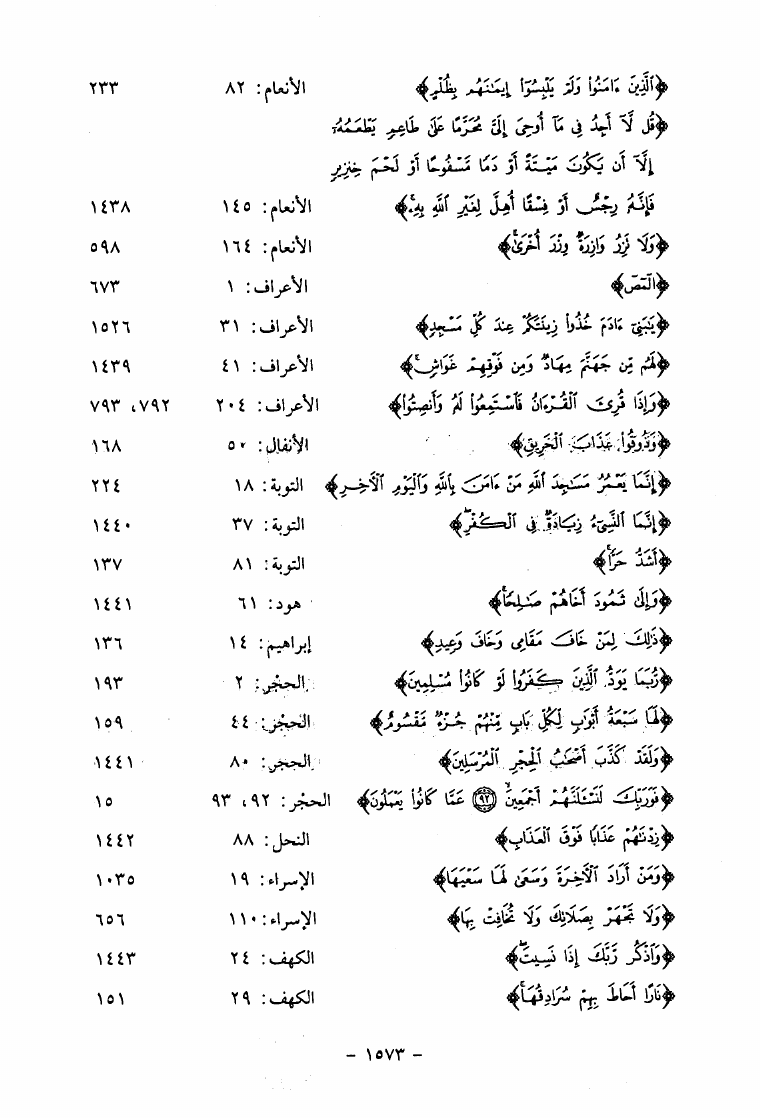 ﴿ٱلَّذِينَ ءَامَنُوا۟ وَلَمْ يَلْبِسُوٓا۟ إِيمَـٰنَهُم بِظُلْمٍ﴾ الأنعام: ٨٢ ٢٣٣
﴿قُل لَّآ أَجِدُ فِى مَآ أُوحِىَ إِلَىَّ مُحَرَّمًا عَلَىٰ طَاعِمٍ يَطْعَمُهُۥٓ
إِلَّآ أَن يَكُونَ مَيْتَةً أَوْ دَمًا مَّسْفُوحًا أَوْ لَحْمَ خِنزِيرٍ
فَإِنَّهُۥ رِجْسٌ أَوْ فِسْقًا أُهِلَّ لِغَيْرِ ٱللَّهِ بِهِۦ﴾ الأنعام: ١٤٥ ١٤٣٨
﴿وَلَا تَزِرُ وَازِرَةٌ وِزْرَ أُخْرَىٰ﴾ الأنعام: ١٦٤ ٥٩٨
﴿الٓمٓصٓ﴾ الأعراف: ١ ٦٧٣
﴿يَـٰبَنِىٓ ءَادَمَ خُذُوا۟ زِينَتَكُمْ عِندَ كُلِّ مَسْجِدٍ﴾ الأعراف: ٣١ ١٥٢٦
﴿لَهُم مِّن جَهَنَّمَ مِهَادٌ وَمِن فَوْقِهِمْ غَوَاشٍ﴾ الأعراف: ٤١ ١٤٣٩
﴿وَإِذَا قُرِئَ ٱلْقُرْءَانُ فَٱسْتَمِعُوا۟ لَهُۥ وَأَنصِتُوا۟﴾ الأعراف: ٢٠٤ ٧٩٢، ٧٩٣
﴿وَذُوقُوا۟ عَذَابَ ٱلْحَرِيقِ﴾ الأنفال: ٥٠ ١٦٨
﴿إِنَّمَا يَعْمُرُ مَسَـٰجِدَ ٱللَّهِ مَنْ ءَامَنَ بِٱللَّهِ وَٱلْيَوْمِ ٱلْـَٔاخِرِ﴾ التوبة: ١٨ ٢٢٤
﴿إِنَّمَا ٱلنَّسِىٓءُ زِيَادَةٌ فِى ٱلْكُفْرِ﴾ التوبة: ٣٧ ١٤٤٠
﴿أَشَدُّ حَرًّا﴾ التوبة: ٨١ ١٣٧
﴿وَإِلَىٰ ثَمُودَ أَخَاهُمْ صَـٰلِحًا﴾ هود: ٦١ ١٤٤١
﴿ذَٰلِكَ لِمَنْ خَافَ مَقَامِى وَخَافَ وَعِيدِ﴾ إبراهيم: ١٤ ١٣٦
﴿رُّبَمَا يَوَدُّ ٱلَّذِينَ كَفَرُوا۟ لَوْ كَانُوا۟ مُسْلِمِينَ﴾ الحجر: ٢ ١٩٣
﴿لَهَا سَبْعَةُ أَبْوَٰبٍ لِّكُلِّ بَابٍ مِّنْهُمْ جُزْءٌ مَّقْسُومٌ﴾ الحجر: ٤٤ ١٥٩
﴿وَلَقَدْ كَذَّبَ أَصْحَـٰبُ ٱلْحِجْرِ ٱلْمُرْسَلِينَ﴾ الحجر: ٨٠ ١٤٤١
﴿فَوَرَبِّكَ لَنَسْـَٔلَنَّهُمْ أَجْمَعِينَ ٩٢ عَمَّا كَانُوا۟ يَعْمَلُونَ﴾ الحجر: ٩٢، ٩٣ ١٥
﴿زِدْنَـٰهُمْ عَذَابًا فَوْقَ ٱلْعَذَابِ﴾ النحل: ٨٨ ١٤٤٢
﴿وَمَنْ أَرَادَ ٱلْـَٔاخِرَةَ وَسَعَىٰ لَهَا سَعْيَهَا﴾ الإسراء: ١٩ ١٠٣٥
﴿وَلَا تَجْهَرْ بِصَلَاتِكَ وَلَا تُخَافِتْ بِهَا﴾ الإسراء: ١١٠ ٦٥٦
﴿وَٱذْكُر رَّبَّكَ إِذَا نَسِيتَ﴾ الكهف: ٢٤ ١٤٤٣
﴿نَارًا أَحَاطَ بِهِمْ سُرَادِقُهَا﴾ الكهف: ٢٩ ١٥١
- ١٥٧٣ -